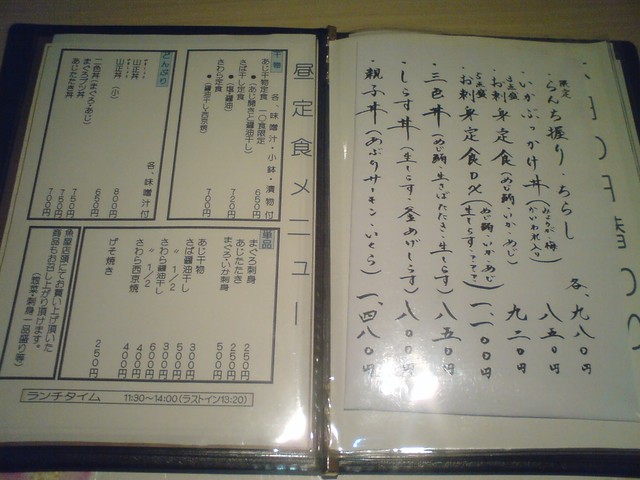 昼定食メニュー
干物
各、味噌汁・小鉢・漬物付
あじ干物定食 一〇食限定 650円
●(あじ開きと醤油干し)
さば干し定食 720円
●(塩・醤油)
さわら定食 700円
●(醤油干し・西京焼)
どんぶり
各、味噌汁付
山正丼 800円
山正丼 (小) 650円
二色丼(まぐろ・あじ) 750円
まぐろブツ丼 750円
あじたたき丼 700円
単品
まぐろ刺身 250円
あじたたき 250円
まぐろ・いか刺身 500円
あじ干物 300円
さば醤油干し 500円
〃 1/2 300円
さわら醤油干し 600円
〃 1/2 400円
さわら西京焼 400円
げそ焼き 250円
魚屋店頭にてお買い上げ頂いた
商品もお召し上がり頂けます。
(惣菜・刺身一品盛り等)
ランチタイム 11:30〜14:00(ラストイン13:20)
限定
・らんち握り・ちらし 各、九八〇円
・いかぶっかけ丼(みょうが・梅・かいわれ入り) 八五〇円
・お刺身定食(めじ鮪・いか・あじ) 九二〇円
・お刺身定食DX 一、一〇〇円
・三色丼(めじ鮪・生さばたたき・生しらす) 八五〇円
・しらす丼(生しらす・釜あげしらす) 八〇〇円
・親子丼(あぶりサーモン・いくら) 一、四八〇円